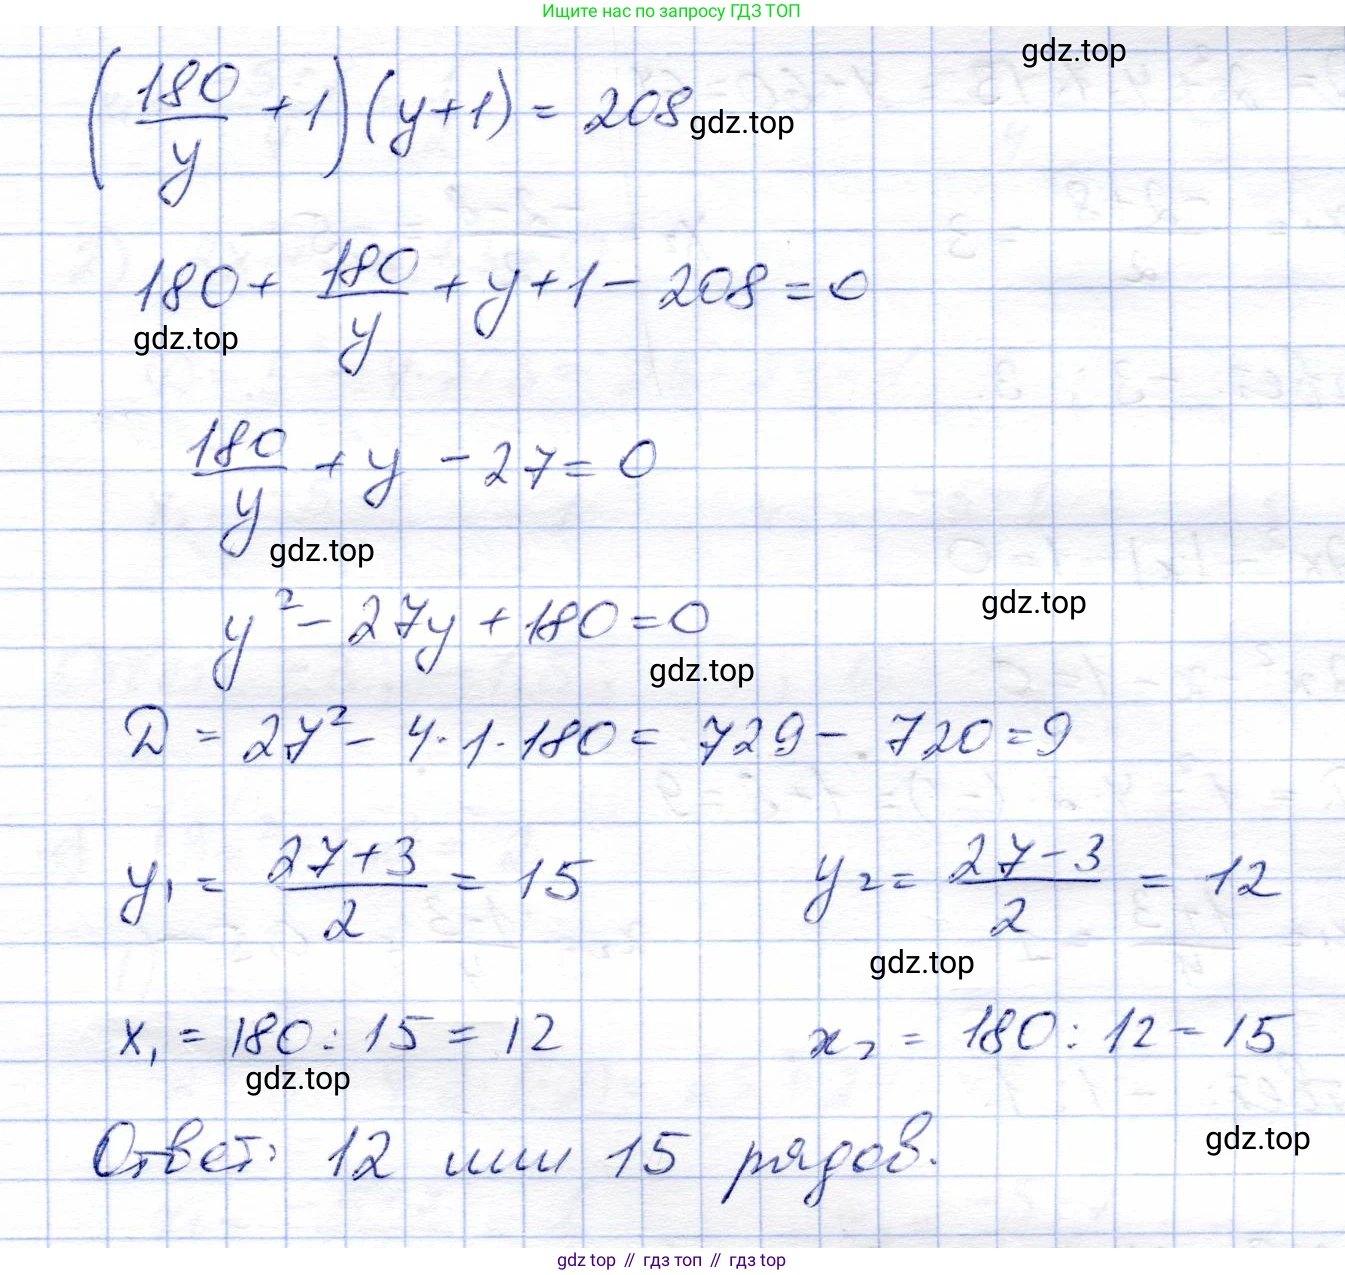 Ищите нас по запросу ГДЗ ТОП
gdz.top
(180/y + 1)(y+1) = 208
gdz.top
180 + 180/y + y + 1 - 208 = 0
gdz.top
180/y + y - 27 = 0
gdz.top
y² - 27y + 180 = 0
gdz.top
gdz.top
D = 27² - 4·1·180 = 729 - 720 = 9
y₁ = (27+3)/2 = 15 y₂ = (27-3)/2 = 12
gdz.top
x₁ = 180:15 = 12 x₂ = 180:12 = 15
gdz.top
Ответ: 12 или 15 рядов.
gdz.top
gdz top // гдз топ // гдз top